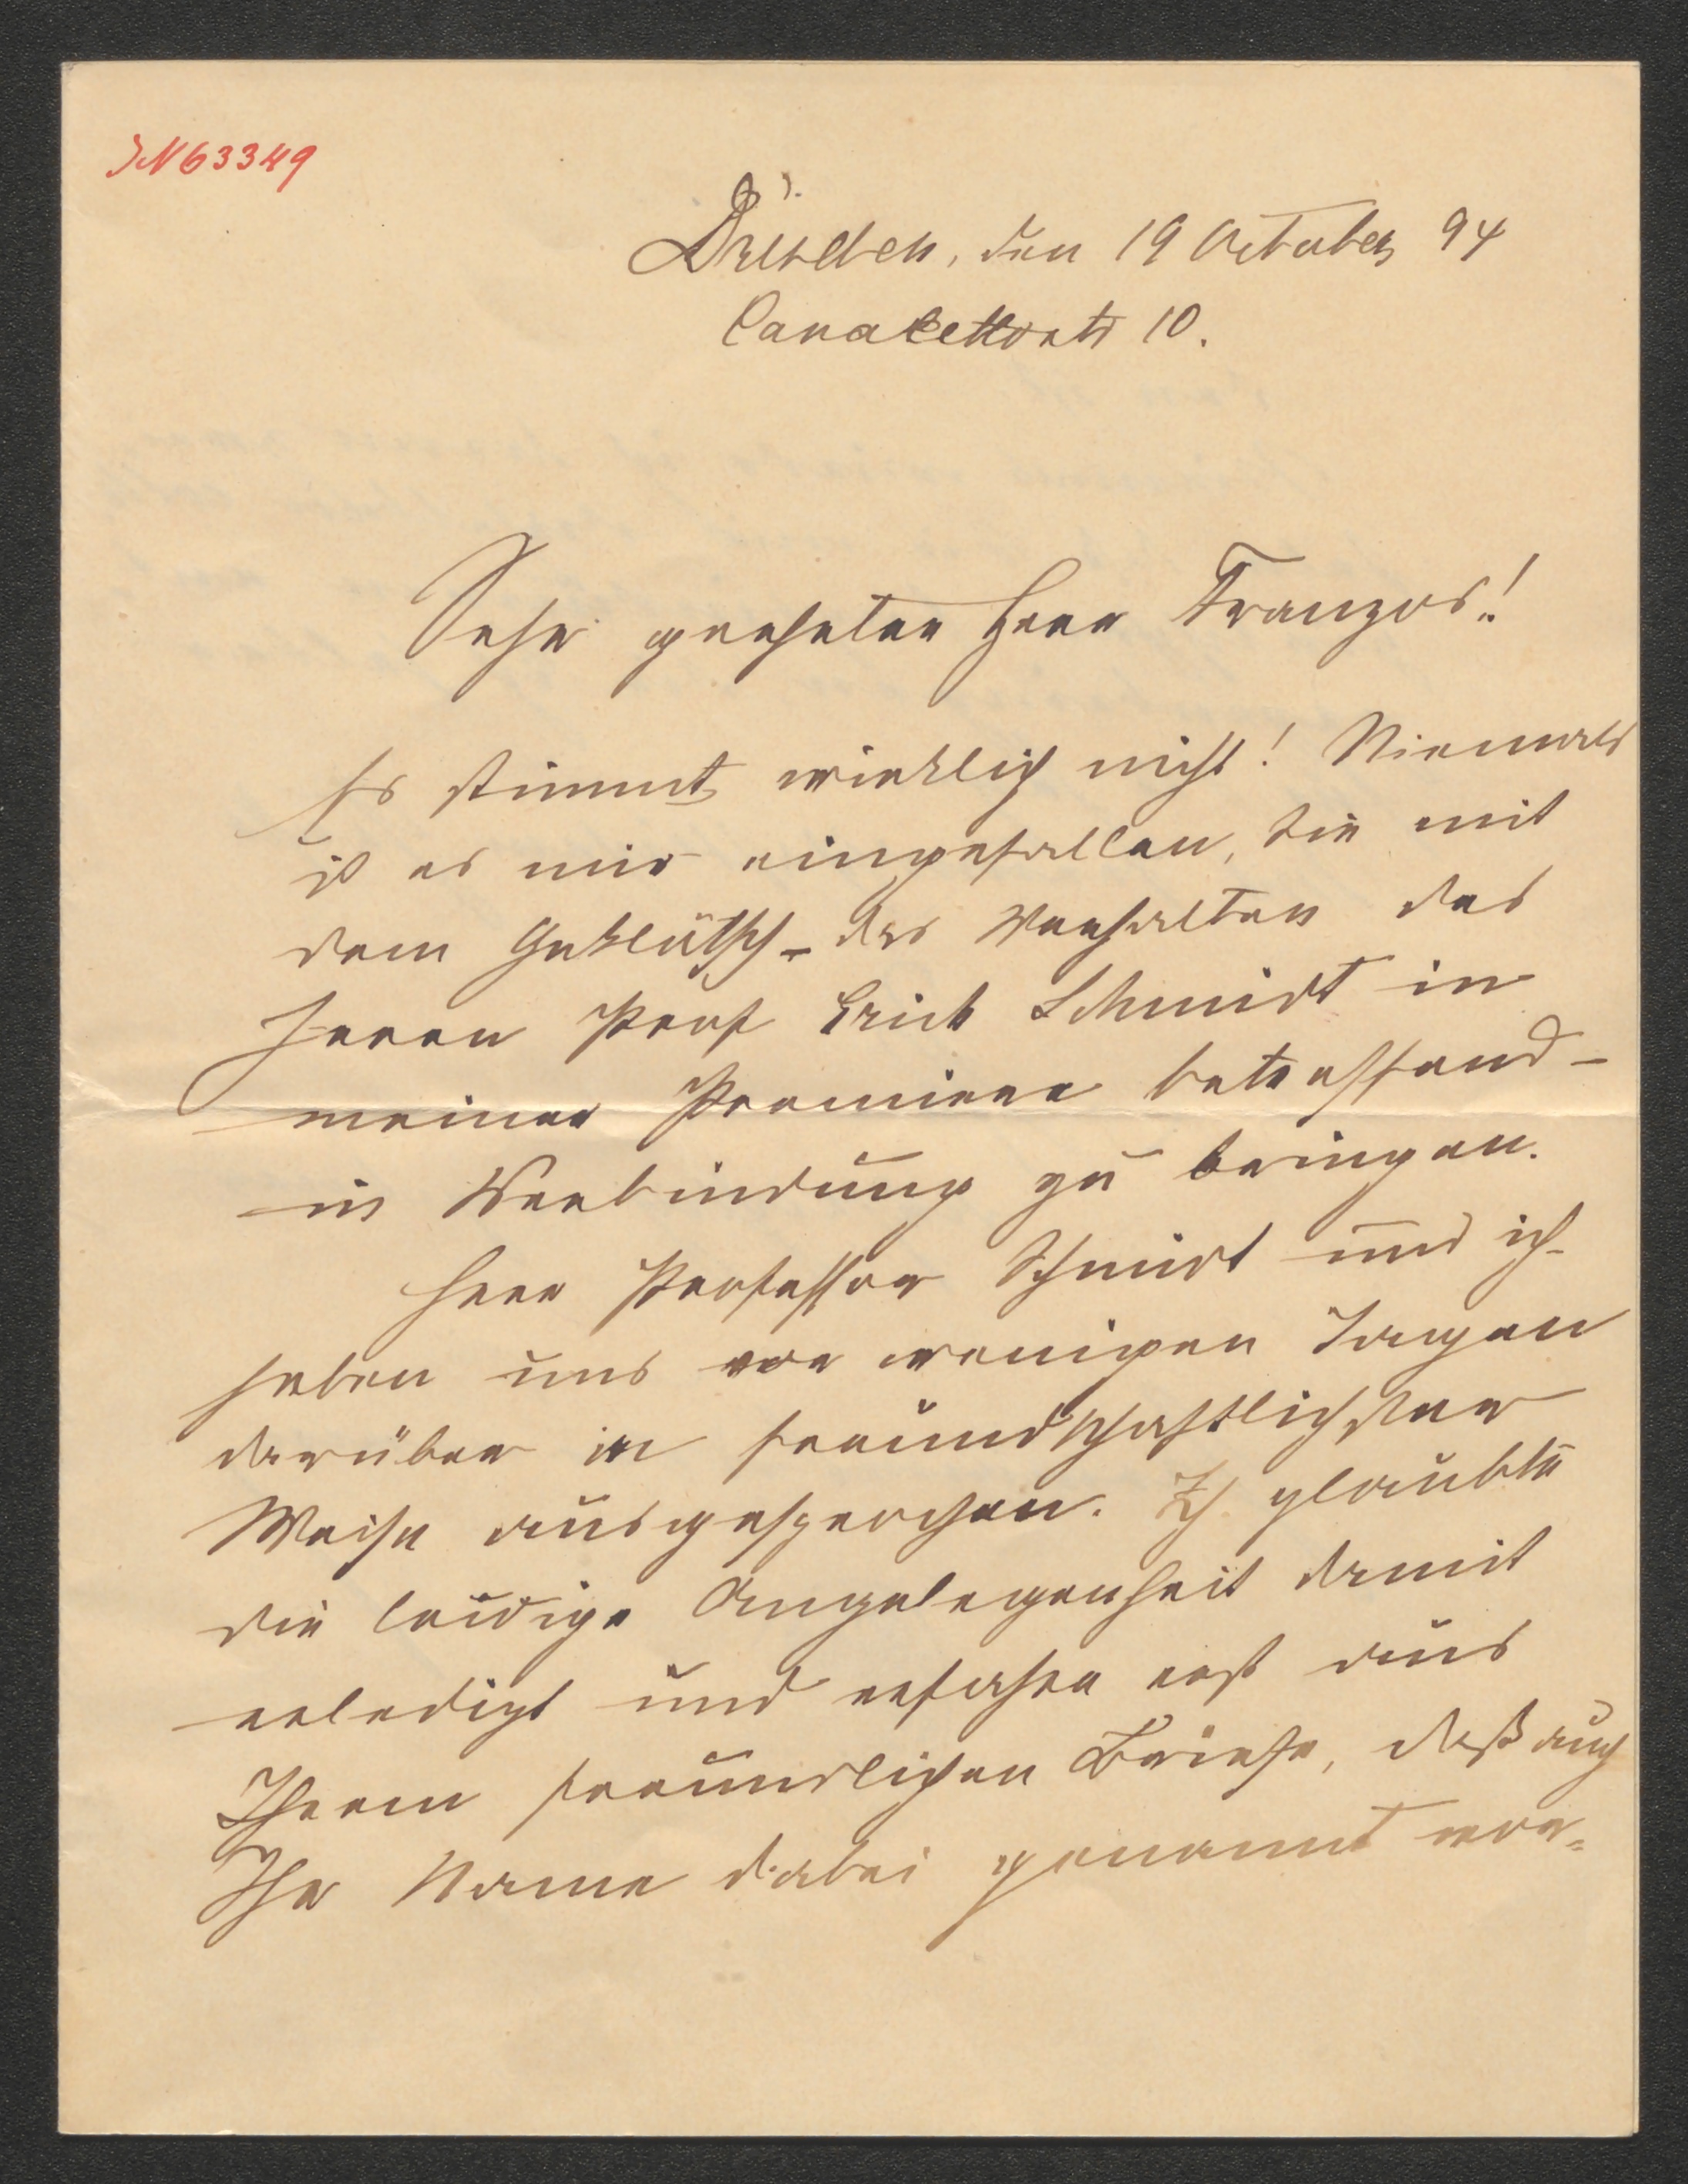 IN 63349
Dresden, den 19 October 94
Canalettostr 10.
Sehr geehrter Herr Franzos!
Es stimmt wirklich nicht! Niemals
ist es mir eingefallen, Sie mit
dem Geklätsch – das Verhalten des
Herrn Prof Erich Schmidt in
meiner Premiere betreffend –
in Verbindung zu bringen.
Herr Professor Schmidt und ich
haben uns vor wenigen Tagen
darüber in freundschaftlichster
Weise ausgesprochen. Ich glaubte
die leidige Angelegenheit damit
erledigt und erfahre erst aus
Ihrem freundlichen Briefe, daß auch
Ihr Name dabei genannt wor=